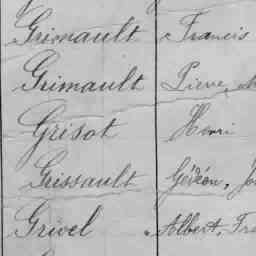 Grimault Francis
Grimault Pierre
Grisot Henri
Grissault Gédéon,
Grivel Albert,